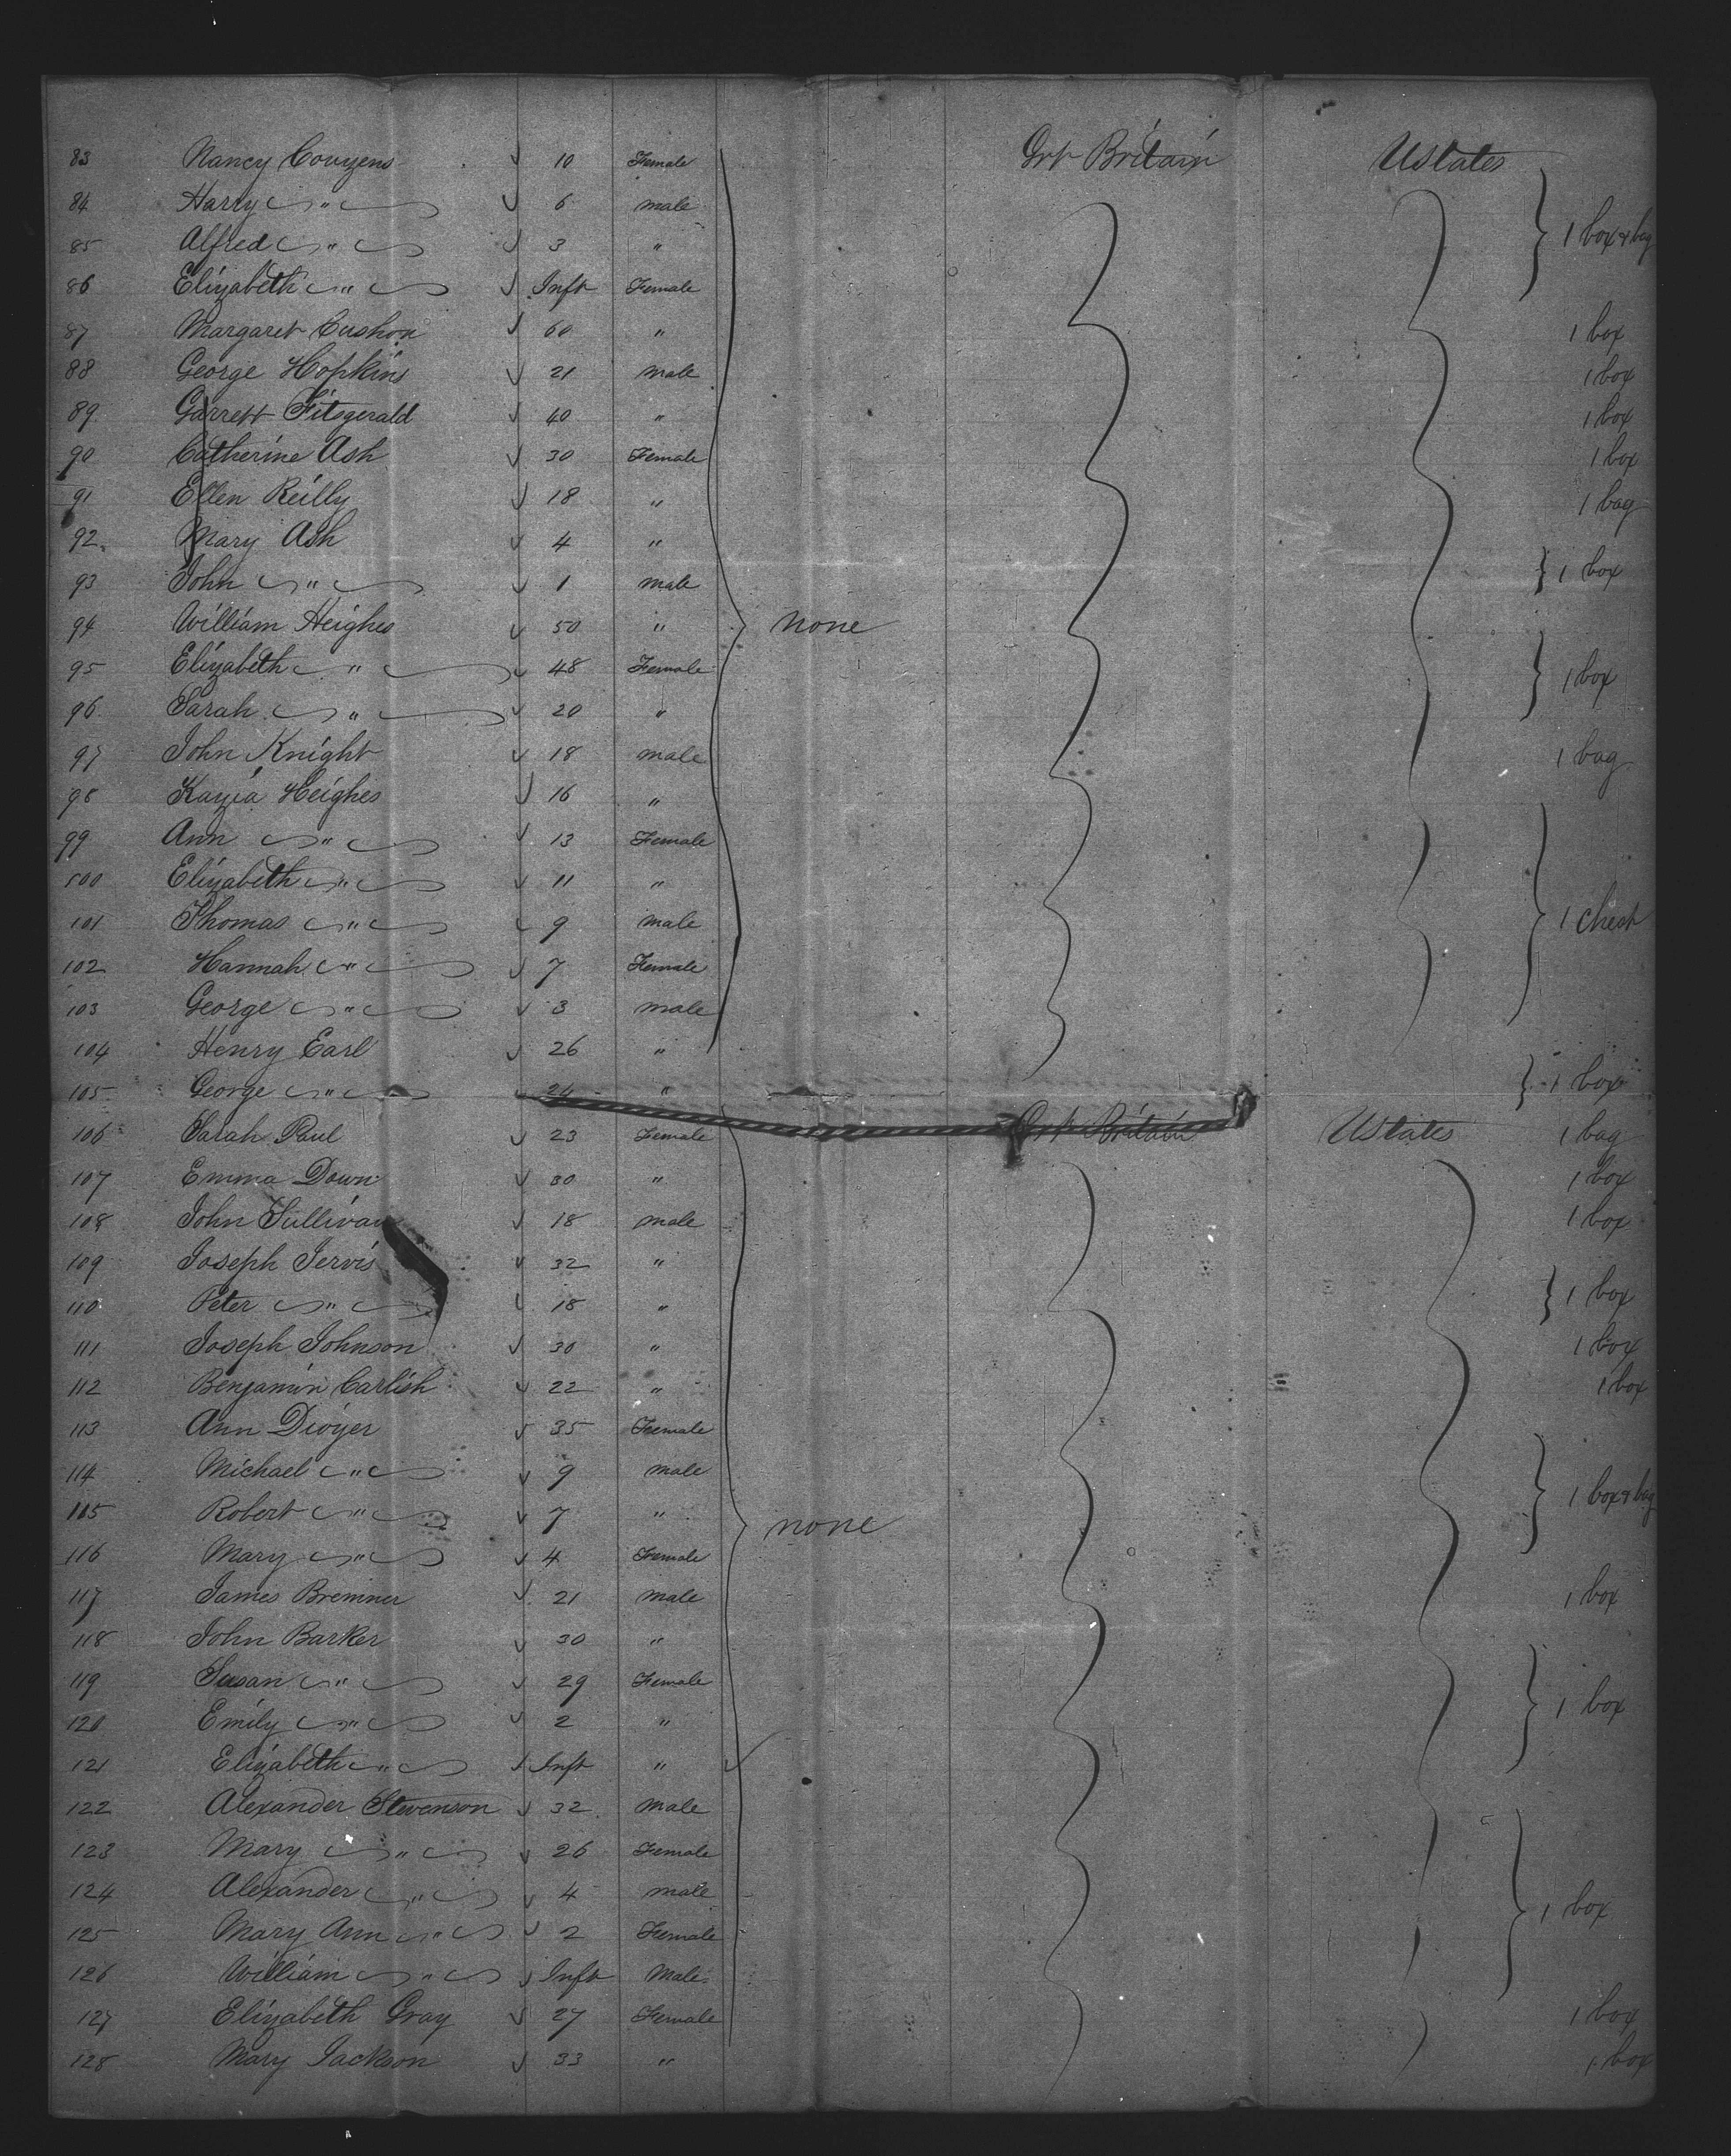 83 Nancy Couzens 10 Female Grt Britain Ustates
84 Harry " 6 male
85 Alfred " 3 " 1 box & bag
86 Elizabeth " Inft Female
87 Margaret Cushon 60 " 1 box
88 George Hopkins 21 male 1 box
89 Garrett Fitsgerald 40 " 1 box
90 Catherine Ash 30 Female 1 box
91 Ellen Reilly 18 " 1 bag
92 Mary Ash 4 "
93 John " 1 male 1 box
94 William Heighes 50 " none
95 Elizabeth " 48 Female 1 box
96 Sarah " 20 "
97 John Knight 18 male 1 bag
98 Kazia Heighes 16 "
99 Ann " 13 Female
100 Elizabeth " 11 "
101 Thomas " 9 male 1 chest
102 Hannah " 7 Female
103 George " 3 male
104 Henry Earl 26 "
105 George " 24 " 1 box
106 Sarah Paul 23 Female Grt Britain Ustates 1 bag
107 Emma Down 30 " 1 box
108 John Sullivan 18 male 1 box
109 Joseph Jervis 32 "
110 Peter " 18 " 1 box
111 Joseph Johnson 30 " 1 box
112 Benjamin Carlish 22 " 1 box
113 Ann Dwyer 35 Female
114 Michael " 9 male 1 box & bag
115 Robert " 7 " none
116 Mary " 4 Female
117 James Bremner 21 male 1 box
118 John Barker 30 "
119 Susan " 29 Female
120 Emily " 2 " 1 box
121 Elizabeth " Inft "
122 Alexander Stevenson 32 Male
123 Mary " 26 Female
124 Alexander " 4 male 1 box
125 Mary Ann " 2 Female
126 William " Inft Male
127 Elizabeth Gray 27 Female 1 box
128 Mary Jackson 33 " 1 box